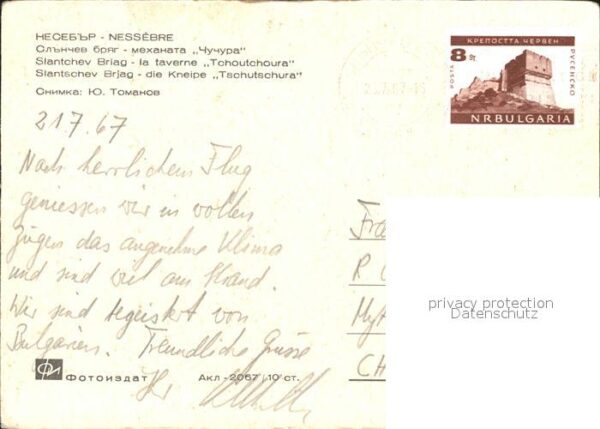 НЕСЕБЪР - NESSÈBRE
Слънчев бряг - механата „Чучура"
Slantchev Briag - la taverne „Tchoutchoura"
Slantschev Brjag - die Kneipe „Tschutschura"
Снимка: Ю. Томанов
КРЕПОСТТА ЧЕРВЕН
8 СТ
ПОЩА
РУСЕНСКО
NRBULGARIA
21 7. 67
Nach herrlichem Flug
geniessen wir in vollen
Zügen das angenehme Klima
und sind viel am Strand.
Wir sind begeistert von
Bulgarien. Freundliche Grüsse
Ihr
Фотоиздат Акл-2067/10 ст.
privacy protection
Datenschutz